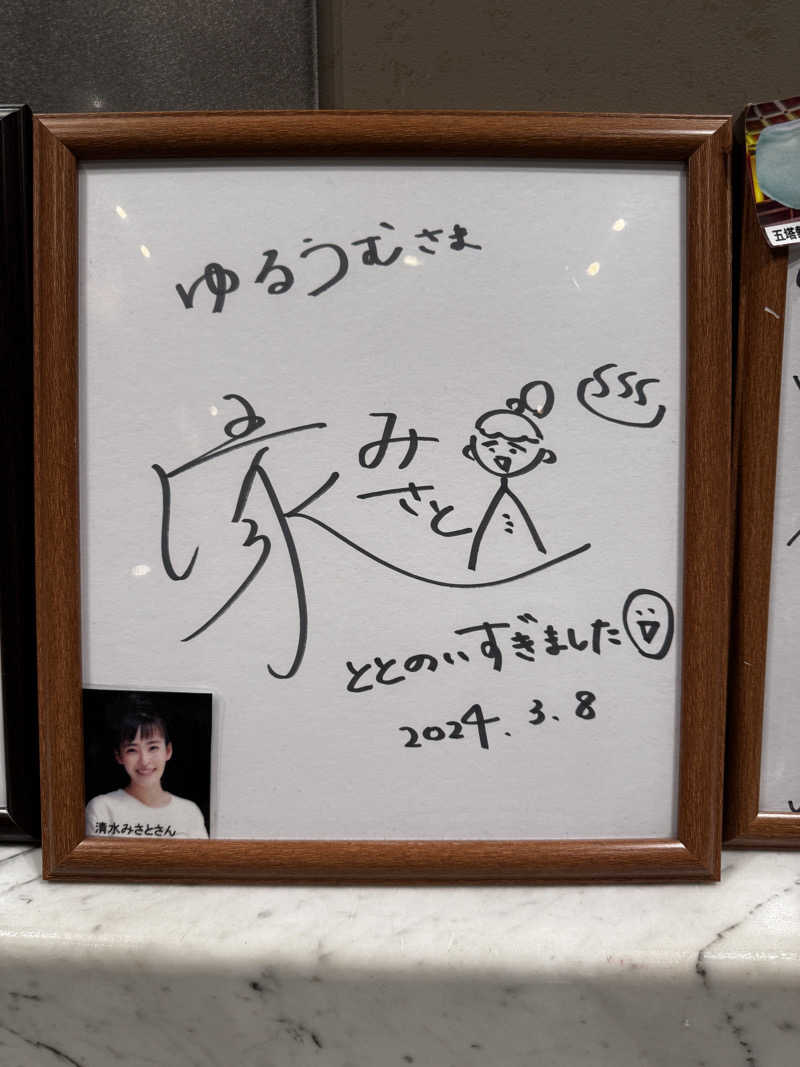 ゆるうむさま
みさと
ととのいすぎました
2024.3.8
清水みさとさん
五塔